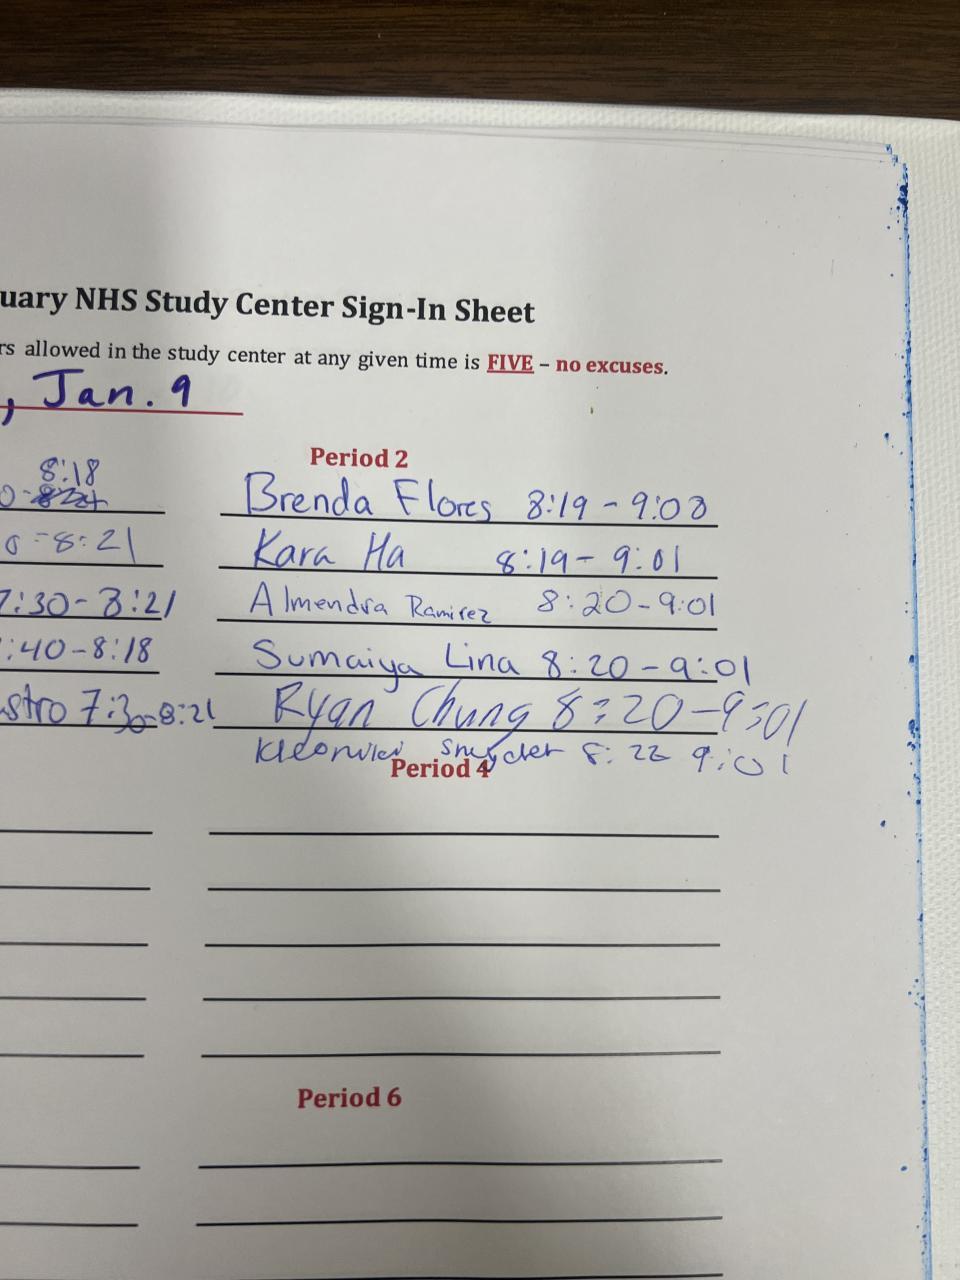 uary NHS Study Center Sign-In Sheet
rs allowed in the study center at any given time is FIVE – no excuses.
, Jan. 9
Period 2
8:18
Brenda Flores 8:19 - 9:03
0 -8:21
Kara Ha 8:19 - 9:01
7:30 - 8:21
Almendra Ramirez 8:20 - 9:01
:40 - 8:18
Sumaiya Lina 8:20 - 9:01
astro 7:30 - 8:21
Ryan Chung 8:20 - 9:01
Snyder 8:22 9:01
Period 4
Period 6